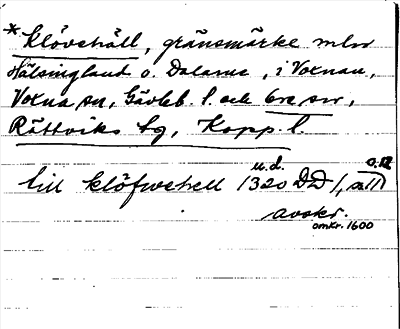 *Klövehäll, gränsmärke mlw
Hälsingland o. Dalarne, i Voxnan,
Voxna sn, Gävleb. l. och Ore sn,
Rättviks tg, Kopp. l.
till klöfwehell 1320 u.d. DD 1,
avskr.
omkr. 1600